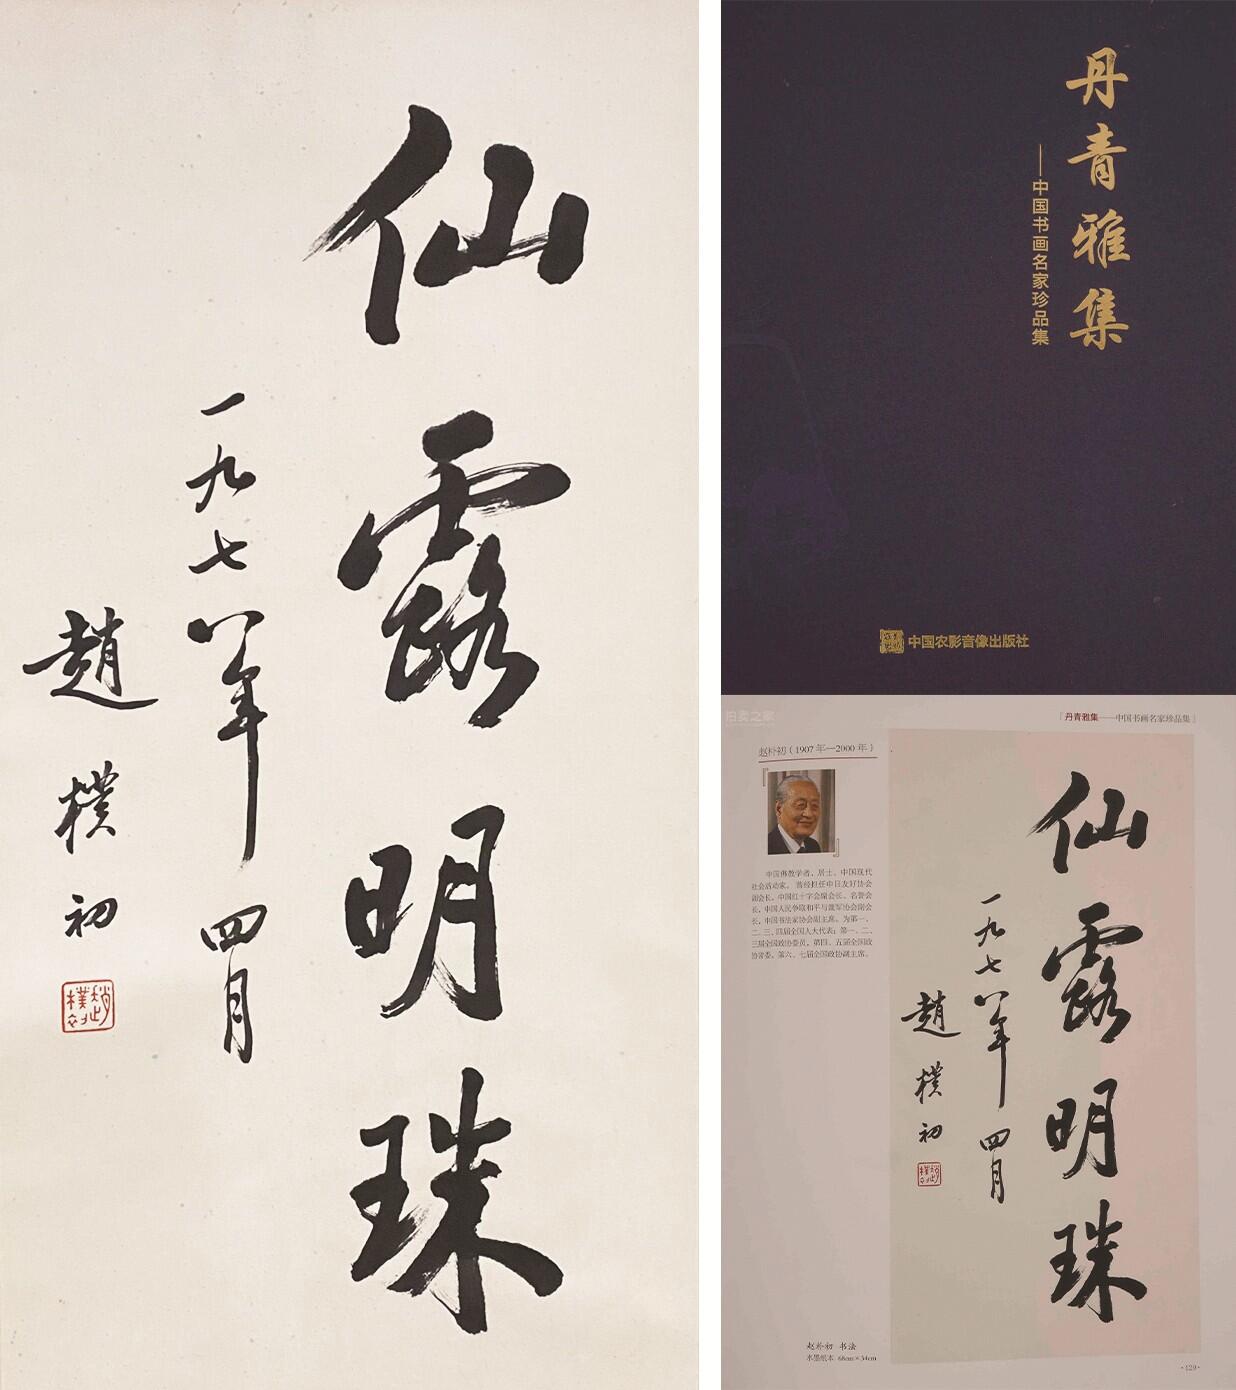 仙露明珠
一九七八年四月
趙樸初
趙樸初
丹青雅集
——中国书画名家珍品集
中国农影音像出版社
拍卖之家
「丹青雅集——中国书画名家珍品集」
赵朴初（1907 年—2000 年）
中国佛教学者、居士、中国现代
社会活动家。曾经担任中日友好协会
副会长，中国红十字会副会长、名誉会
长，中国人民争取和平与裁军协会副会
长，中国书法家协会副主席。为第一、
二、三、四届全国人大代表；第一、二、
三届全国政协委员，第四、五届全国政
协常委，第六、七届全国政协副主席。
仙露明珠
一九七八年四月
趙樸初
赵朴初 书法
水墨纸本 68cm×34cm
·129·